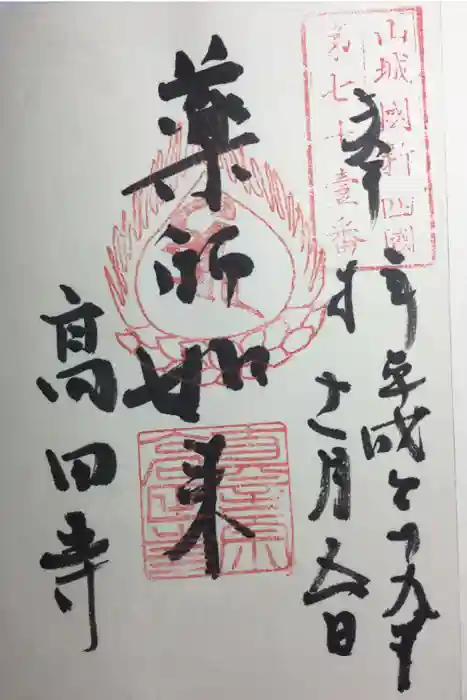 山城國新四國
第七十壹番
奉拝
平成二十九年
十二月五日
薬師如来
高田寺